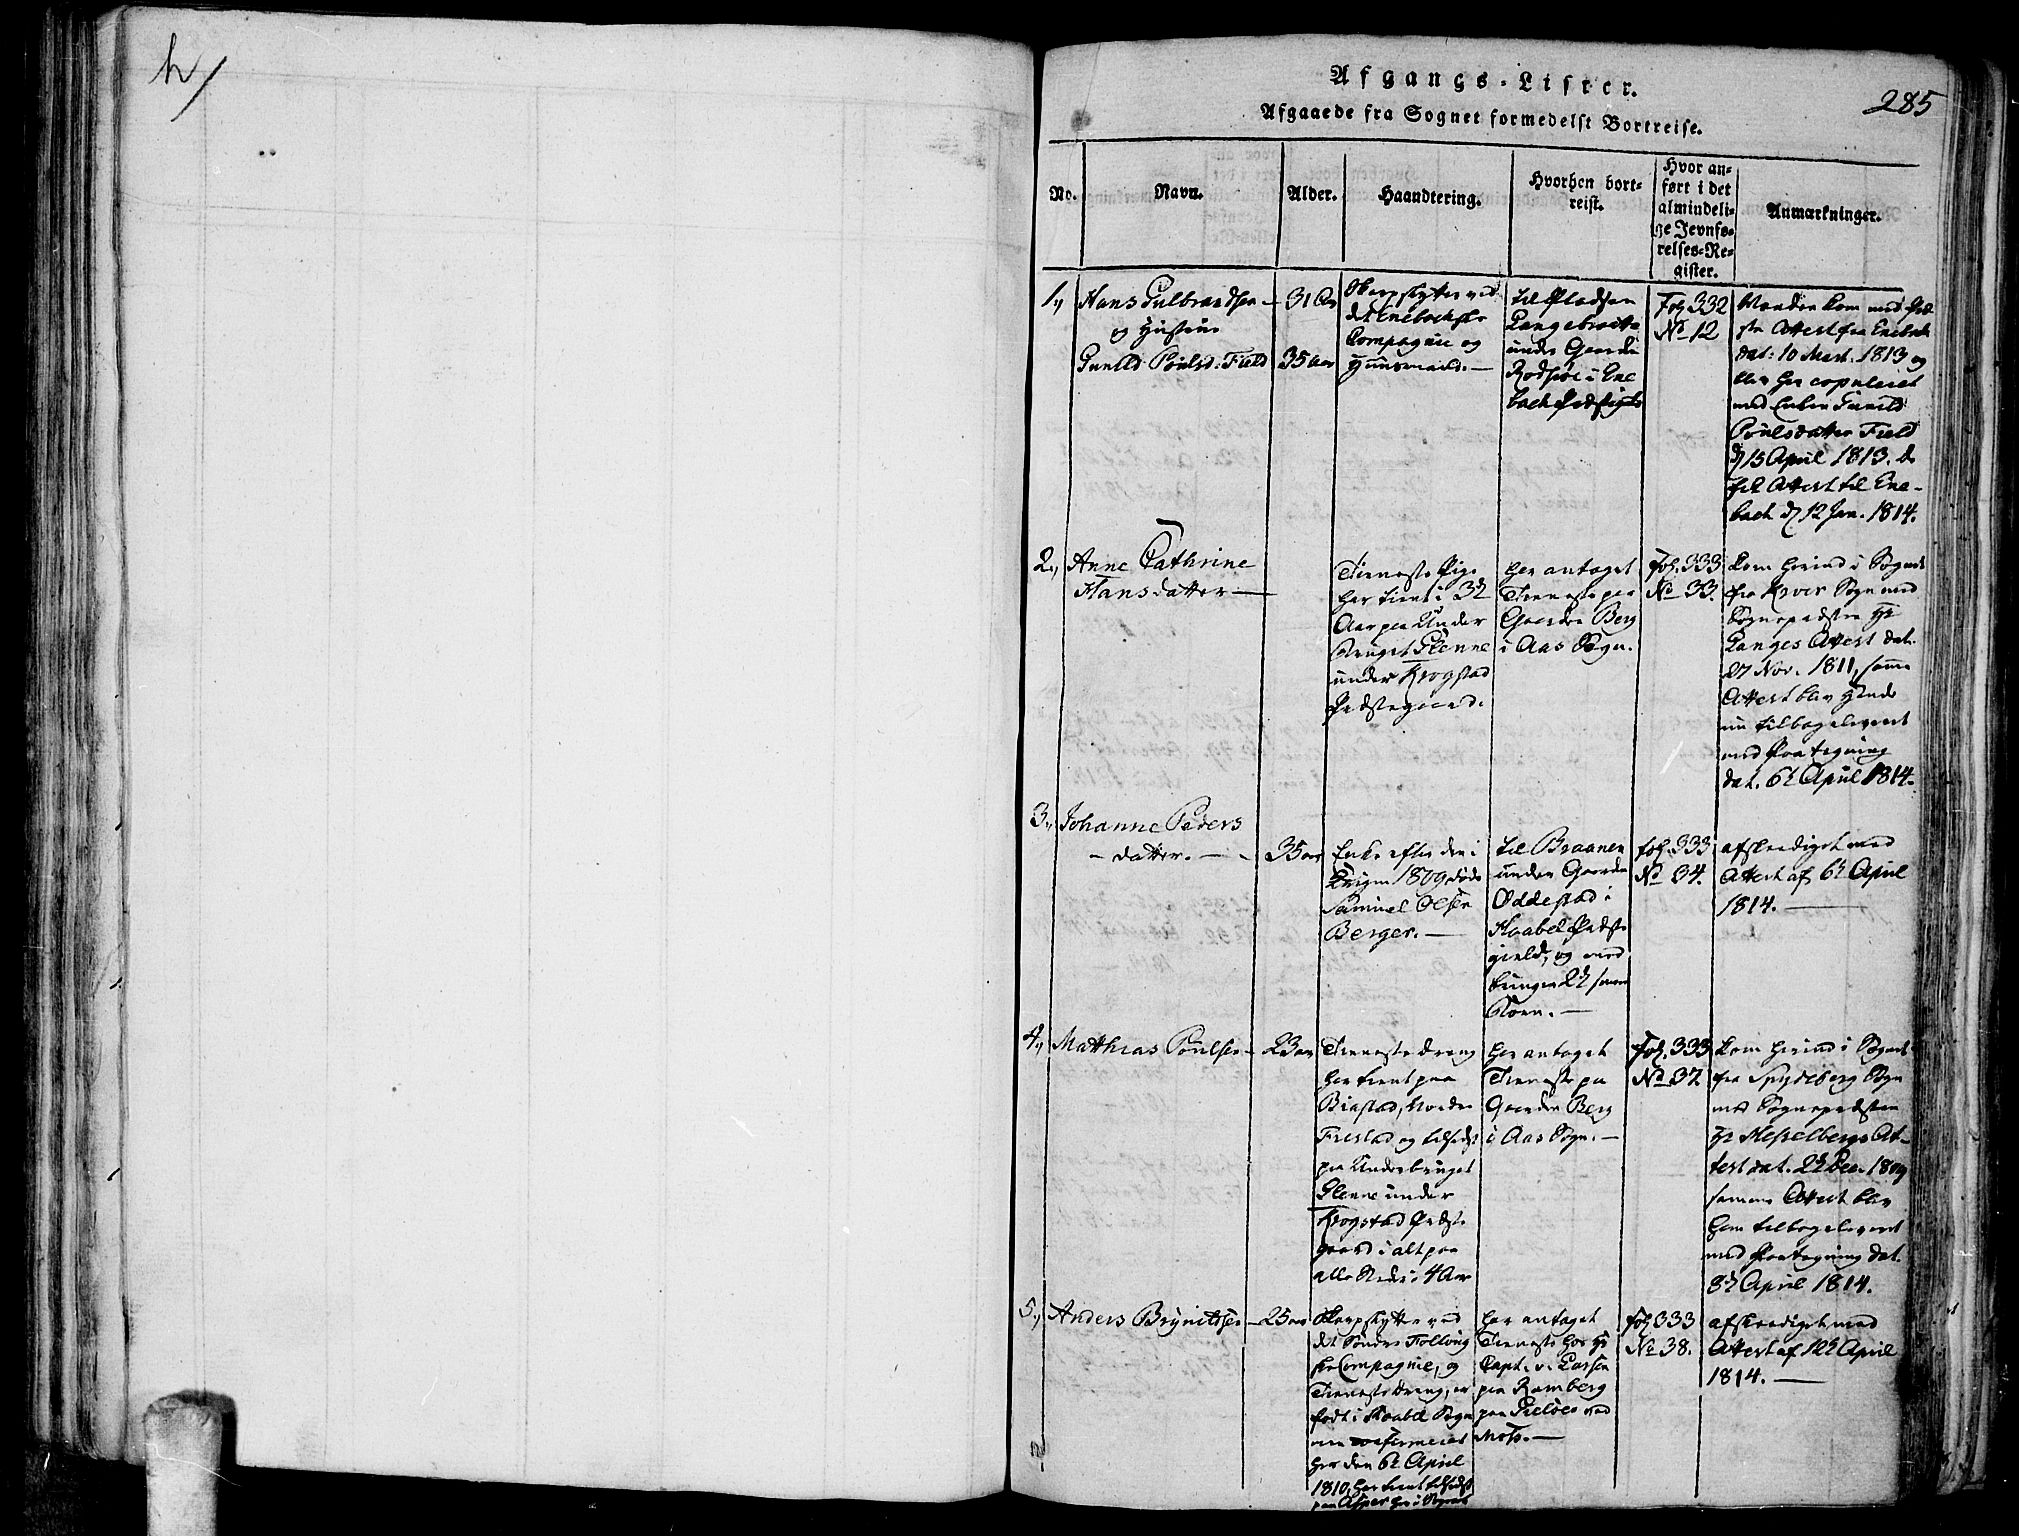 Afgangs-Lister.
285
Afgaaede fra Sognet formedelst Bortreise.
No.
Navn.
Alder.
Haandtering.
Hvorhen bort-
reist.
Hvor an-
ført i det
almindeli-
ge Jevnfø-
relses-Re-
gister.
Anmærkninger.
1.,
Hans Gulbrandsen -
og Hustrue
Gunild Poulsd: Field
31 Aar
35 Aar
Skarpskytter ved
det Enebachske
Compagnie og
Huusmand. -
til Pladsen
Langebraate
under Gaarden
i Ene
bach Præstegield
Fol. 332
No 12
Manden kom med Præ
ste Attest fra Enebach
dat: 10 Mart. 1813 og
blev her copuleret
med Enken Gunild
Poulsdatter Field
d 15 April 1813. de
fik Attest til Ene-
bach d 12 Jan. 1814.
2.,
Anne Cathrine
Hansdatter -
Tieneste Pige
har tient i 3½
Aar paa Under
bruget Glenne
under Krogstad
Præstegaard.
har antaget
Tieneste paa
Gaarden Berg
i Aas Sogn.
fol. 333
No 33.
kom herind i Sognet
fra Kroer Sogn med
Sognepræsten Hr
Langes Attest dat.
27 Nov. 1811, samme
Attest blev hende
nu tilbageleveret
med Paategning
dat. 6te April 1814.
3.,
Johanne Peders
- datter. -
35 aar
Enke efter den i
Krigen 1809 døde
Samuel Olsen
Berger. -
til Braanen
under Gaarden
Oddestad i
Haabøl Præste
gield, og med
bringer
Korn. -
fol. 333
No 34.
afskediget med
Attest af 6te April
1814. -
4.,
Matthias Poulsen -
23 aar
Tieneste dreng
har tient paa
Nordre
Frestad og tilsidst
paa Underbruget
Glenne under
Krogstad Præste
gaard i alt paa
alle Steder i 4 Aar
har antaget
Tieneste paa
Gaarden Berg
i Aas Sogn. -
fol. 333
No 37
kom herind i Sognet
fra Spydeberg Sogn
med Sognepræsten
Hr Hesselbergs At-
test dat. Dec. 1809
samme Attest blev
ham tilbageleveret
med Paategning dat.
8de April 1814.
5.,
Anders Brynildsen -
25 aar
Skarpskytter ved
det Søndre Follong
ske Compagnie, og
Tieneste dreng, er
født i Haabøl Sogn
men confirmeret
her den 6te April
1810, har tient tilsidst
paa her i Sognet
har antaget
Tieneste hos Hr
Capt. v. Larsen
paa Ramberg
paa Gieløe ved
Moss. -
fol. 333
No 38.
afskediget med
Attest af 12te April
1814. -